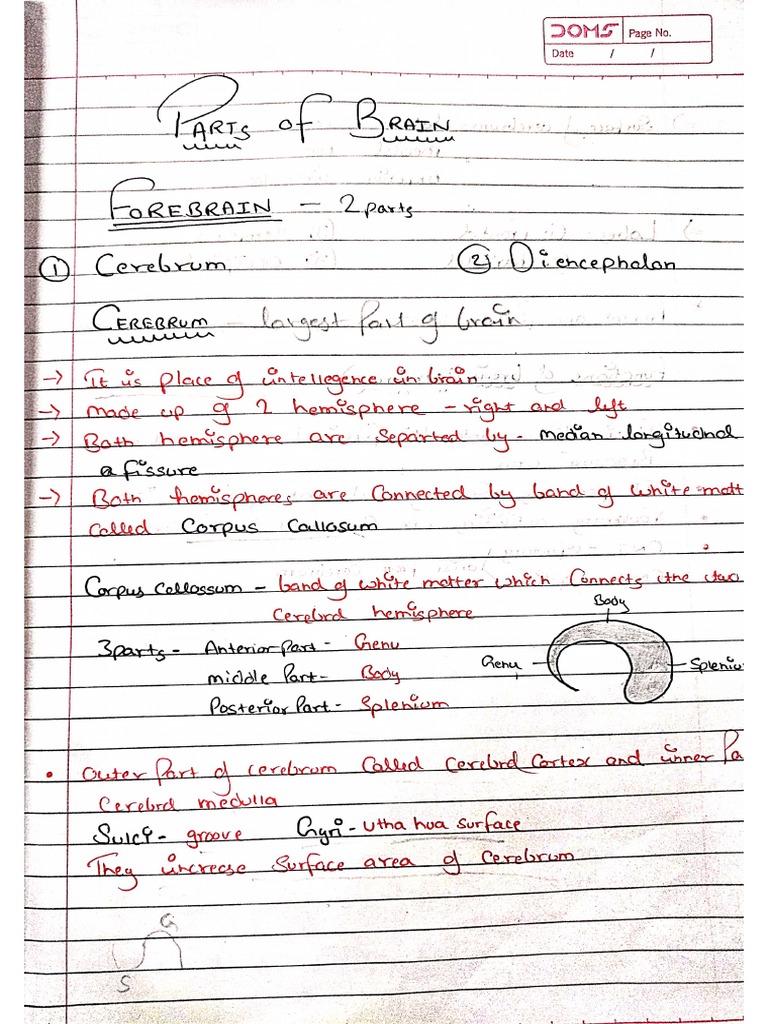 DOMS Page No.
Date / /
PARTS of BRAIN
FOREBRAIN - 2 parts
① Cerebrum ② Diencephalon
CEREBRUM - largest Part of brain
→ It is place of intellegence in brain
→ made up of 2 hemisphere - right and left
→ Both hemisphere are separted by - median longitudnal
a fissure
→ Both hemispheres are Connected by band of white matt
called Corpus Callosum
Corpus callossum - band of white matter which Connects the two
Cerebrd hemisphere
Body
3 parts - Anterior part - Genu
Genu Spleniu
middle Part - Body
Posterior Part - Splenium
• Outer Part of cerebrum Called Cerebrd Cortex and inner Pa
Cerebrd medulla
Sulci - groove Gyri - Utha hua surface
They increase Surface area of Cerebrum
G
S